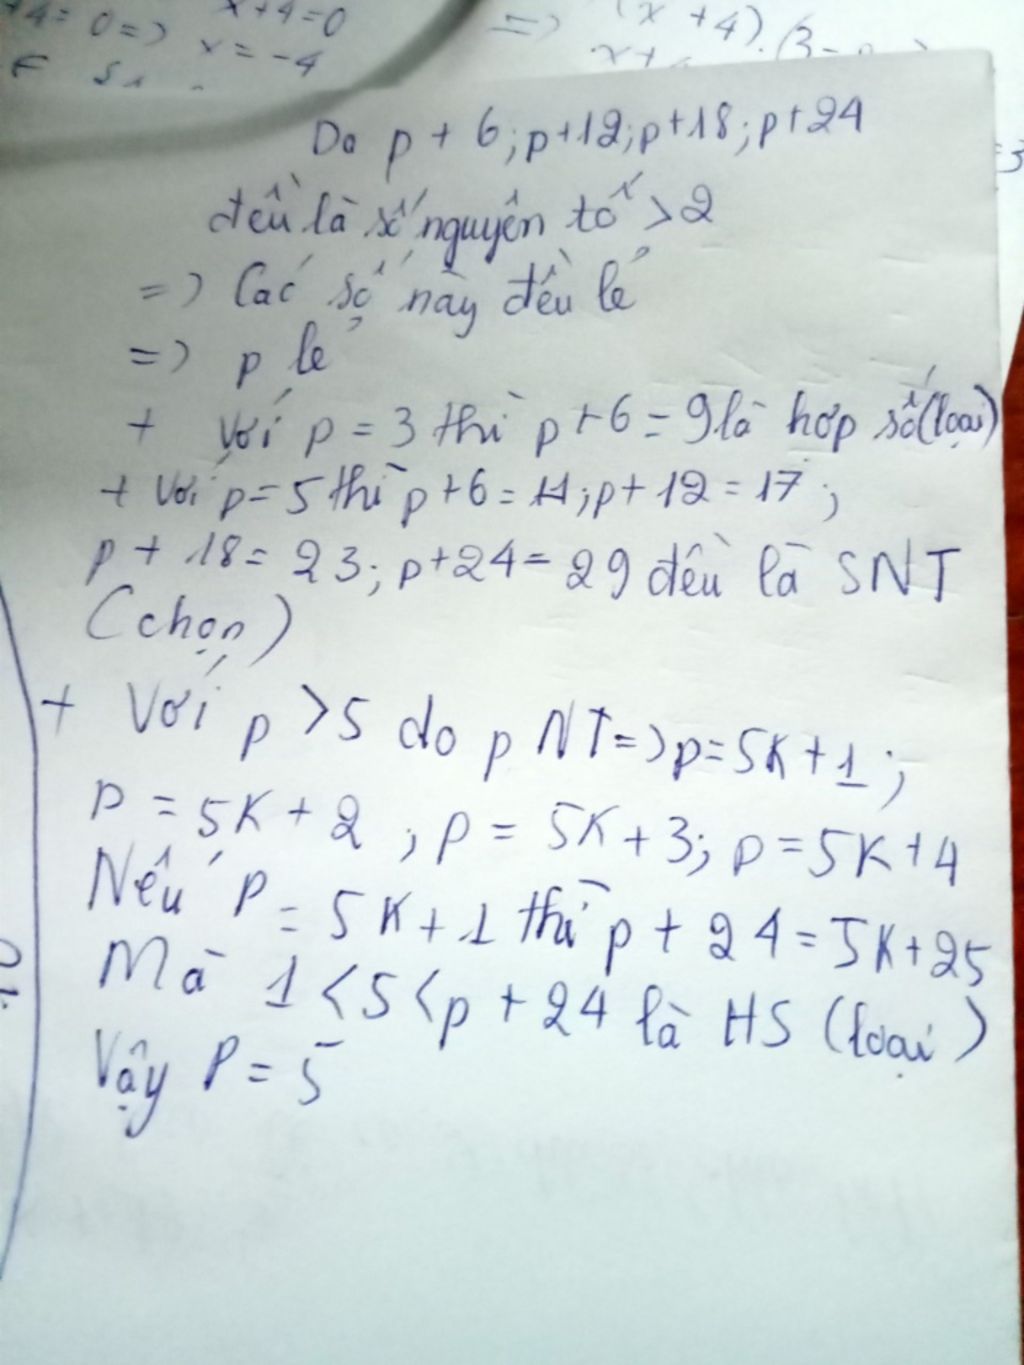 4 = 0 => x+4=0
x = -4
=> (x + 4).(3-
x+
Do p + 6; p+12; p+18; p+24
đều là số nguyên tố > 2
=> Các số này đều lẻ
=> p lẻ
+ Với p = 3 thì p+6 = 9 là hợp số (loại)
+ Với p = 5 thì p+6 = 11; p+12 = 17;
p + 18 = 23; p+24 = 29 đều là SNT
(chọn)
+ Với p > 5 do p NT => p = 5K + 1;
p = 5K + 2; p = 5K + 3; p = 5K + 4
Nếu p = 5K + 1 thì p + 24 = 5K + 25
Mà 1 < 5 < p + 24 là HS (loại)
Vậy P = 5